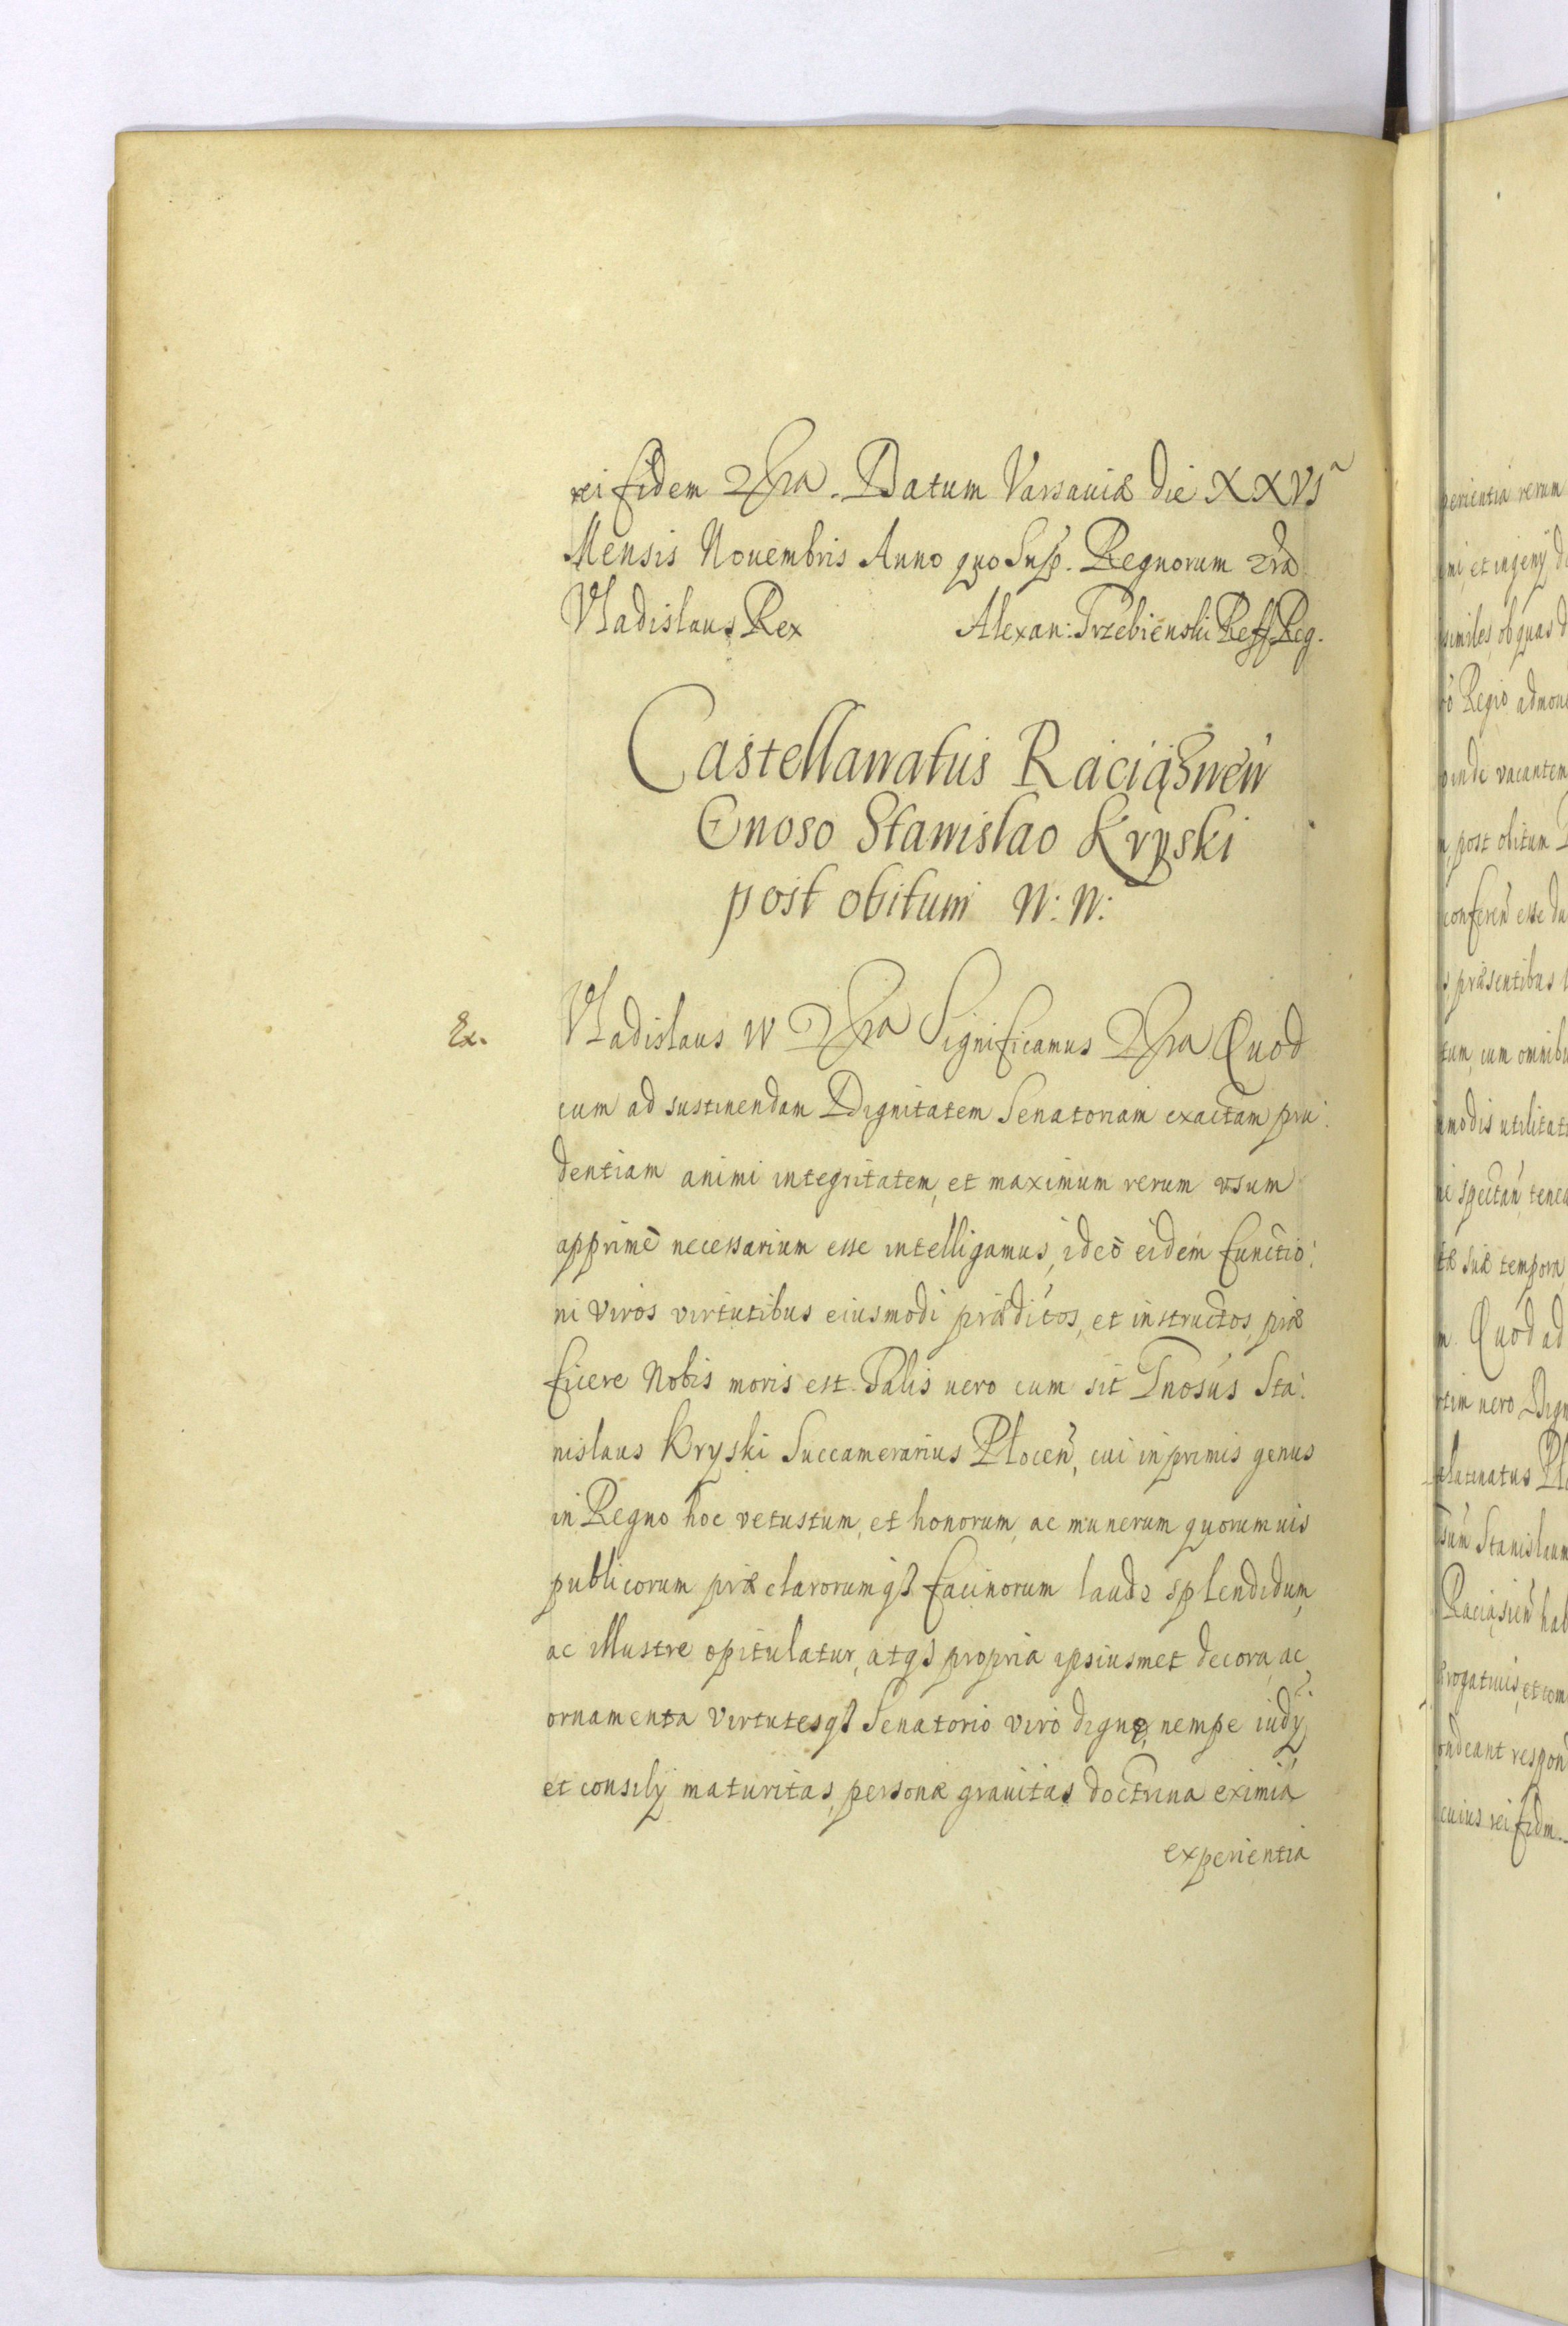 rei fidem &ra. Datum Varsauiæ die XXVI
Mensis Nouembris Anno quo Sup. Regnorum &ra
Vladislaus Rex Alexan: Trzebienski Reff. Reg.
Castellanatus Raciąsnen̄
Gnoso Stanislao Kryski
post obitum N: N:
Ex.
Vladislaus IV &ra Significamus &ra Quod
cum ad sustinendam Dignitatem Senatoriam exactam pru:
dentiam animi integritatem, et maximum rerum vsum
apprimè necessarium esse intelligamus, ideò eidem functio:
ni viros virtutibus eiusmodi præditos, et instructos, præ
ficere Nobis moris est. Talis uero cum sit Gnosus Sta:
nislaus Kryski Succamerarius Płocen̄, cui inprimis genus
in Regno hoc vetustum, et honorum, ac munerum quorumuis
publicorum præclarorumq3 facinorum laude splendidum,
ac illustre opitulatur, atq3 propria ipsiusmet decora, ac
ornamenta virtutesq3 Senatorio viro dignę, nempe iudÿ
et consilÿ maturitas, personæ grauitas doctrina eximia
experientia
perientia rerum
ni, et ingenÿ
similes, ob quas
Regio admon
inde vacantem
post obitum
conferen̄ esse du
præsentibus
tum, cum omnibu
modis utilitati
spectan̄, tenea
suæ tempora
Quod ad
uero Dign
latinatus Pło
Stanislaum
Raciąsien̄ hab
rogatiuis, et com
ondeant respond
cuius rei fidm